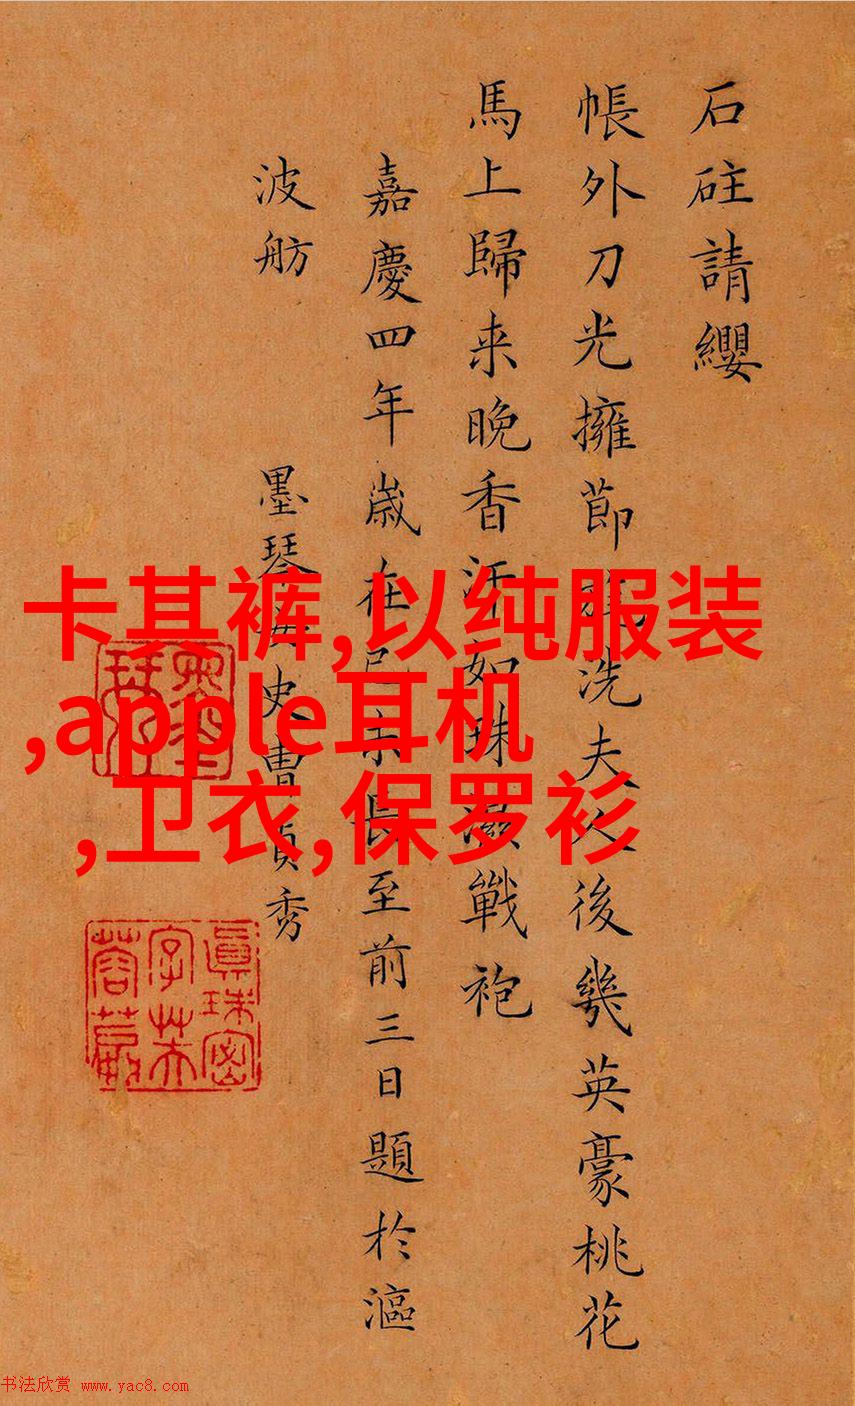 石砫請纓
帳外刀光擁節旄洗夫人後幾英豪桃花
馬上歸来晚香汗如珠濺戰袍
嘉慶四年歲在己未長至前三日題於漚
波舫
墨琴女史曹貞秀
卡其裤,以纯服装
,apple耳机
,卫衣,保罗衫
書法欣赏 www.yac8.com